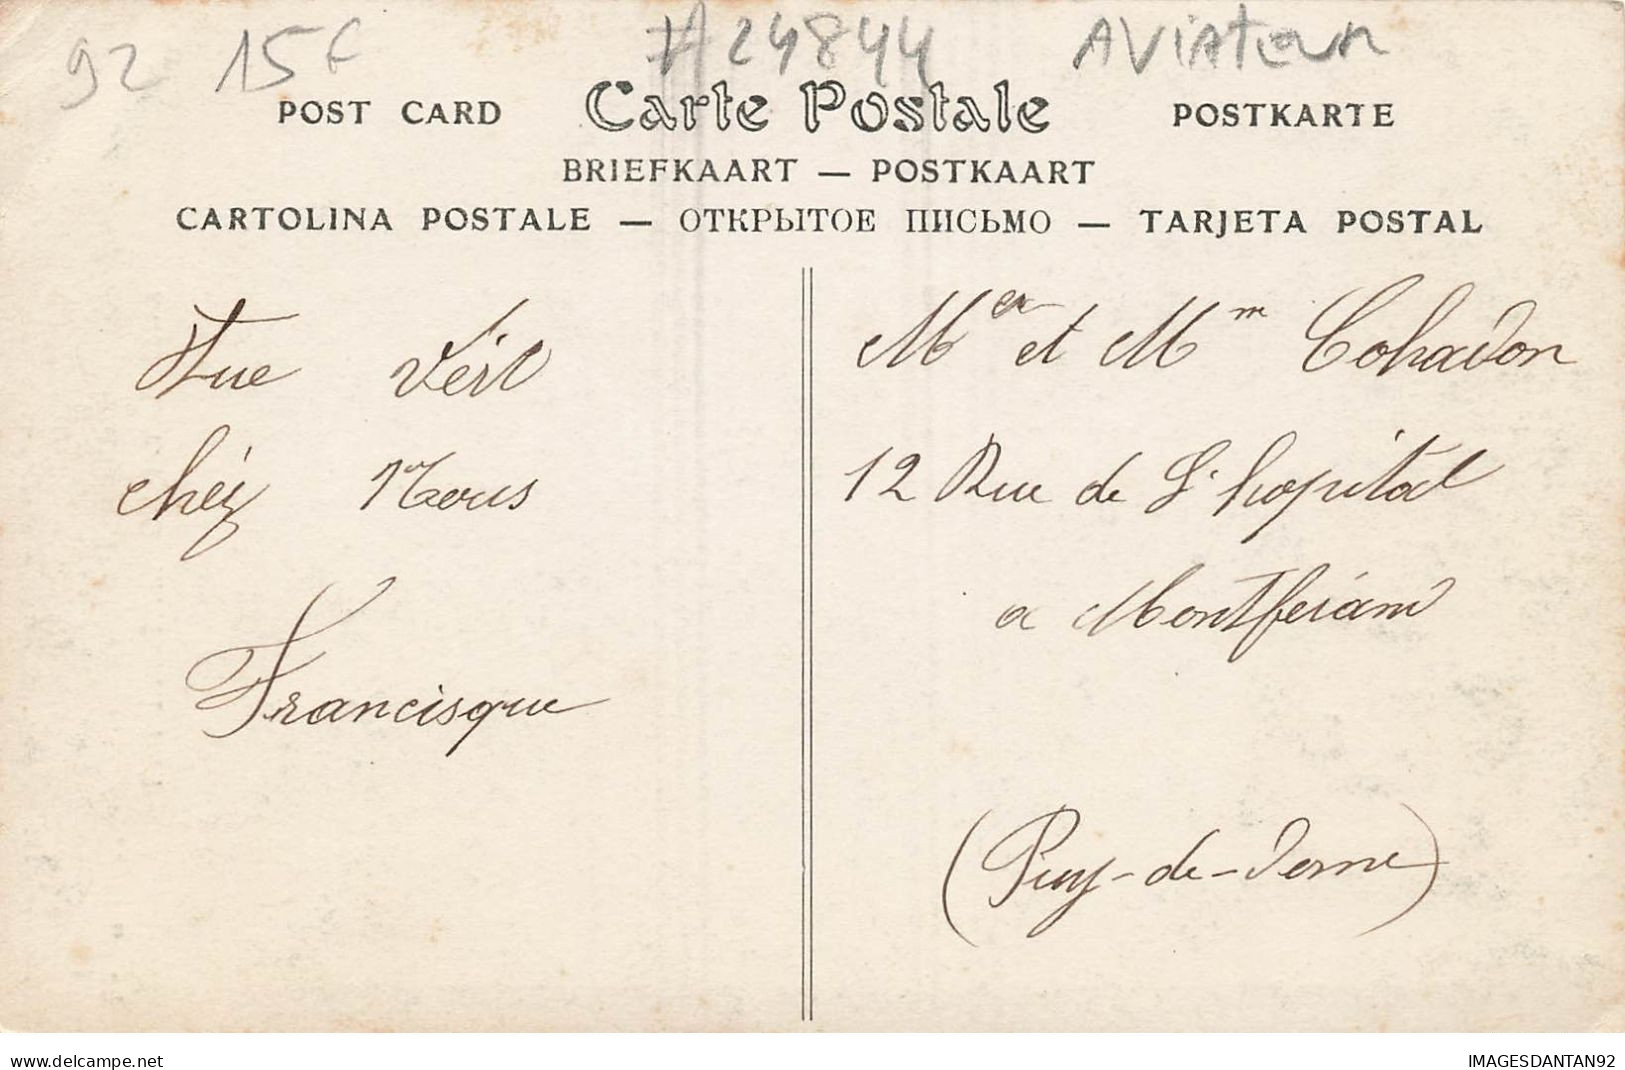 92 15F #24844 AViAteur
POST CARD Carte Postale POSTKARTE
BRIEFKAART — POSTKAART
CARTOLINA POSTALE — ОТКРЫТОЕ ПИСЬМО — TARJETA POSTAL
Vue
chéz Nous
Francisque
Mer et Mm Cohadon
12 Rue de L'hopital
a Montferand
(Puy-de-Dome)
www.delcampe.net
IMAGESDANTAN92